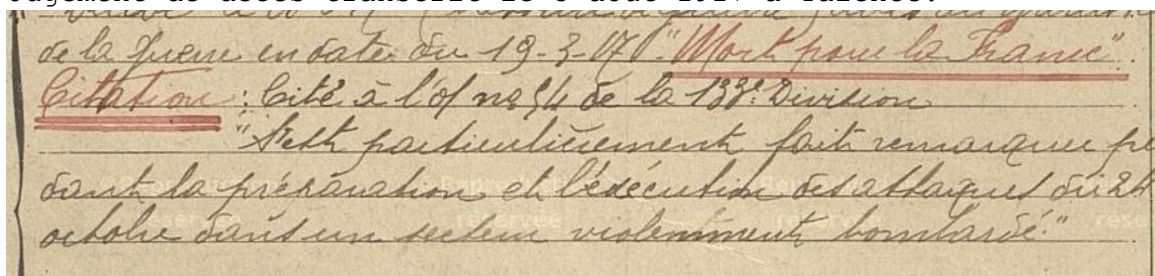 de la Guerre en date du 19-3-17 "Mort pour la France"
Citation : Cité à l'o/ no 54 de la 133e Division
"S'est particulièrement fait remarquer pe
dant la préparation et l'exécution des attaques du 24
octobre dans un secteur violemment bombardé."